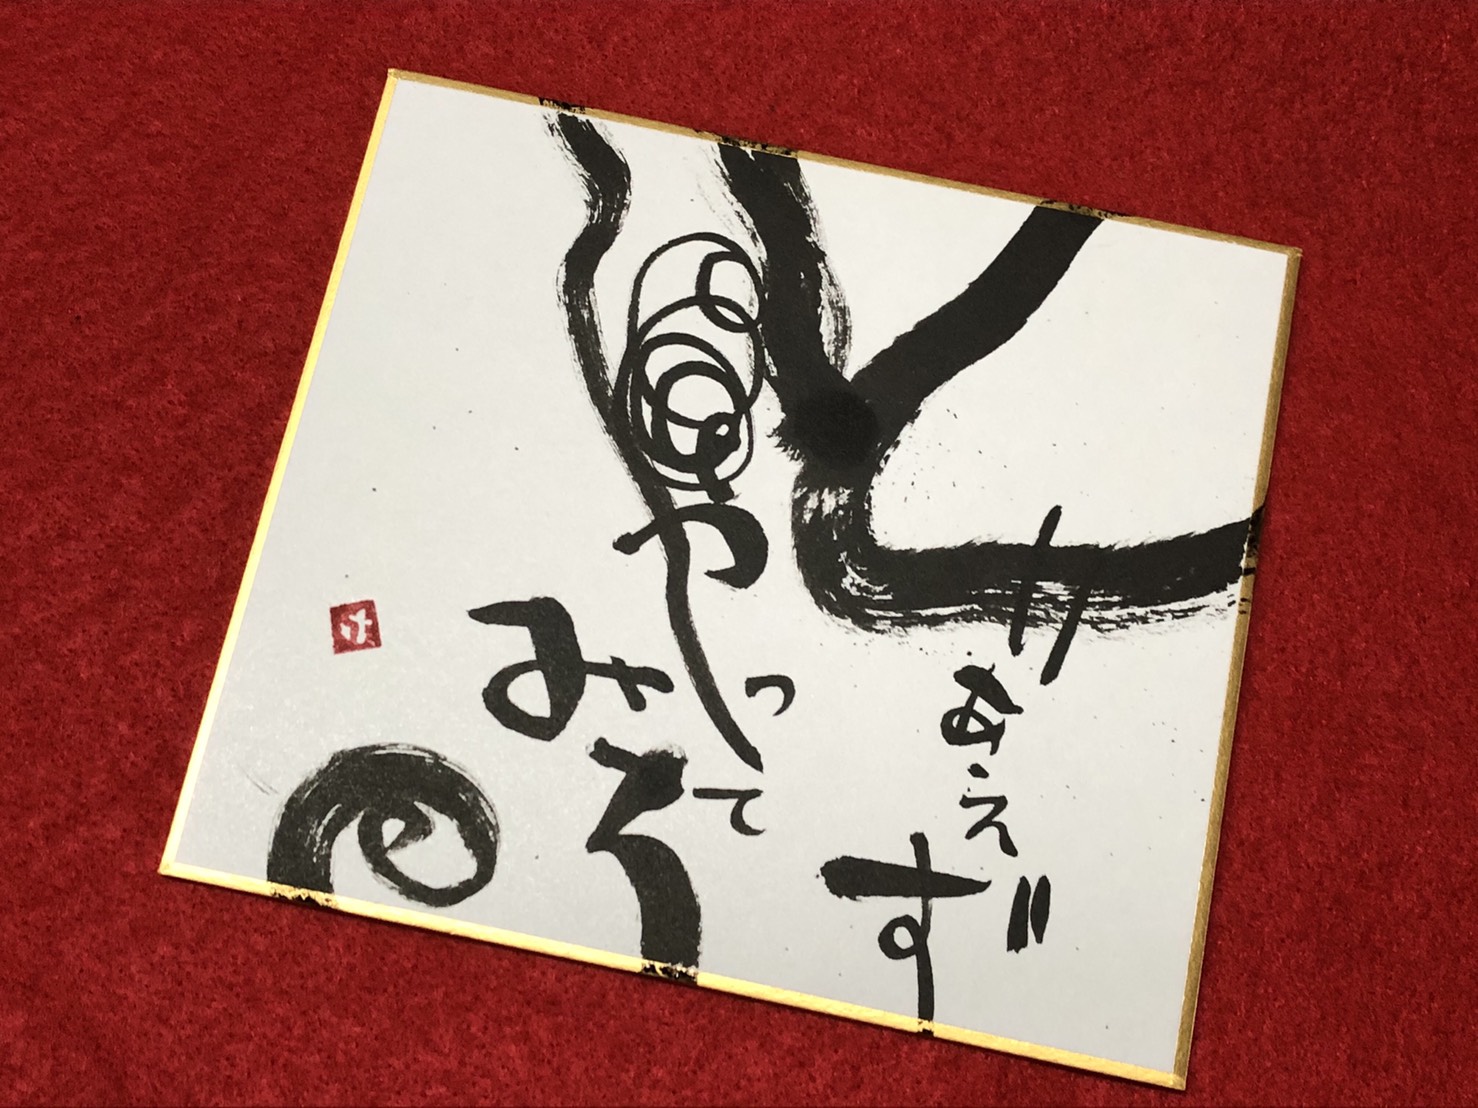 とりあえず
やって
みる